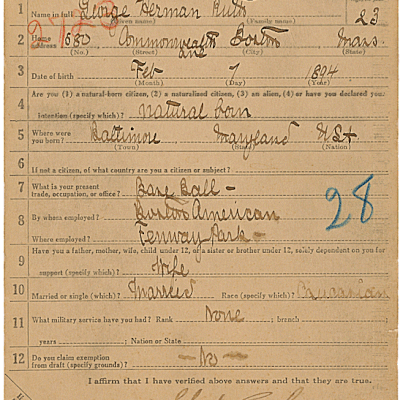 1 Name in full George Herman Ruth 23
(Given name) (Family name)
2723
2 Home address 680 Commonwealth Ave Boston Mass
(No.) (Street) (City) (State)
3 Date of birth Feb 7 1894
(Month) (Day) (Year)
4 Are you (1) a natural-born citizen, (2) a naturalized citizen, (3) an alien, (4) or have you declared your
intention (specify which)? natural born
5 Where were you born? Baltimore Maryland USA
(Town) (State) (Nation)
6 If not a citizen, of what country are you a citizen or subject?
7 What is your present trade, occupation, or office? Base Ball -
28
8 By whom employed? Boston American
Where employed? Fenway Park -
9 Have you a father, mother, wife, child under 12, or a sister or brother under 12, solely dependent on you for
support (specify which)? Wife
10 Married or single (which)? Married Race (specify which)? Caucasian
11 What military service have you had? Rank None ; branch
years ; Nation or State
12 Do you claim exemption from draft (specify grounds)? - No -
I affirm that I have verified above answers and that they are true.